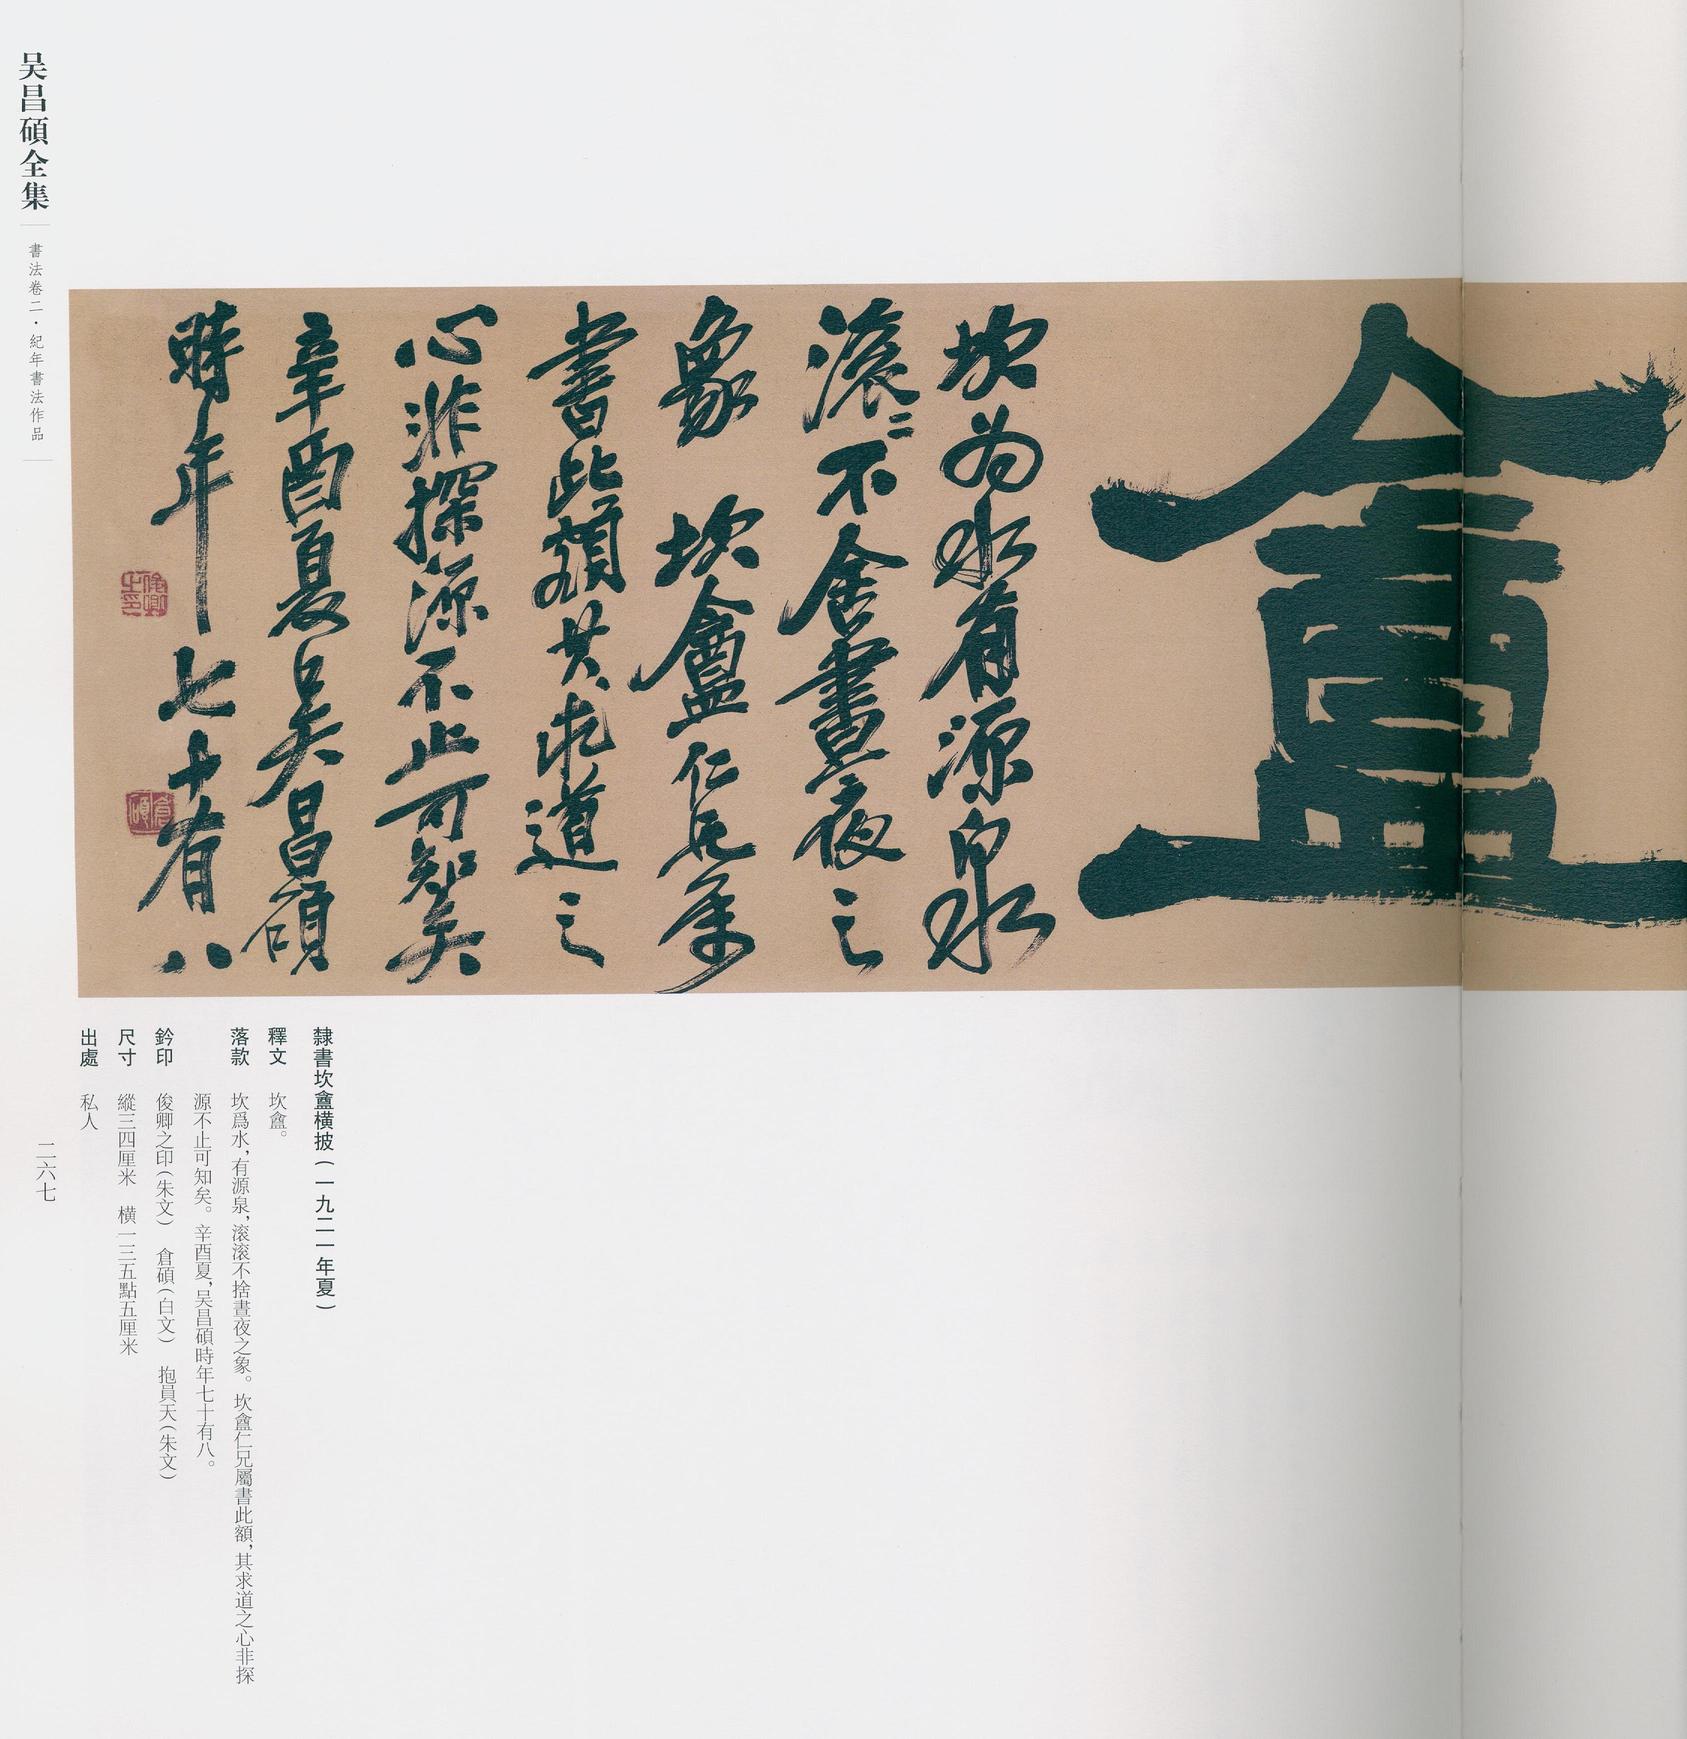 盦
坎為水有源泉
滚〻不舍晝夜之
象 坎盦仁兄属
書此額其求道之
心非探源不止可知矣
辛酉夏吴昌碩
時年七十有八
俊卿之印
倉碩
隸書坎盦横披(一九二一年夏)
釋文 坎盦。
落款 坎爲水,有源泉,滚滚不捨晝夜之象。坎盦仁兄屬書此額,其求道之心非探
源不止可知矣。辛酉夏,吴昌碩時年七十有八。
鈐印 俊卿之印(朱文) 倉碩(白文) 抱員天(朱文)
尺寸 縱三四厘米 横一三五點五厘米
出處 私人
吴昌碩全集
書法卷二·紀年書法作品
二六七